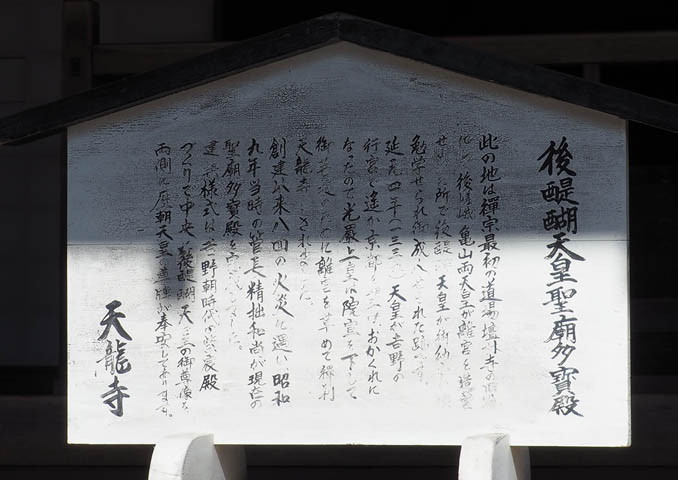 後醍醐天皇聖廟多寳殿
此の地は禅宗最初の道場壇林寺の
後嵯峨亀山両天皇が離宮を造営
せ 所で後醍 天皇が御幼
勉学せられ御成人せられた
延元四年一三三九 天皇が吉野の
行宮で遙か京都 おかくれに
なったので光厳上皇は院宣を下して
御菩提のために離宮を革めて禅刹
天龍寺 されました
創建以来八回の火災に遭い昭和
九年当時の管長精拙和尚が現在の
聖廟多寳殿を ました
建 様式は吉野朝時代の紫宸殿
づくりで中央 後醍醐天皇の御尊像を
両側に歴朝天皇の尊牌が奉安してあります。
天龍寺